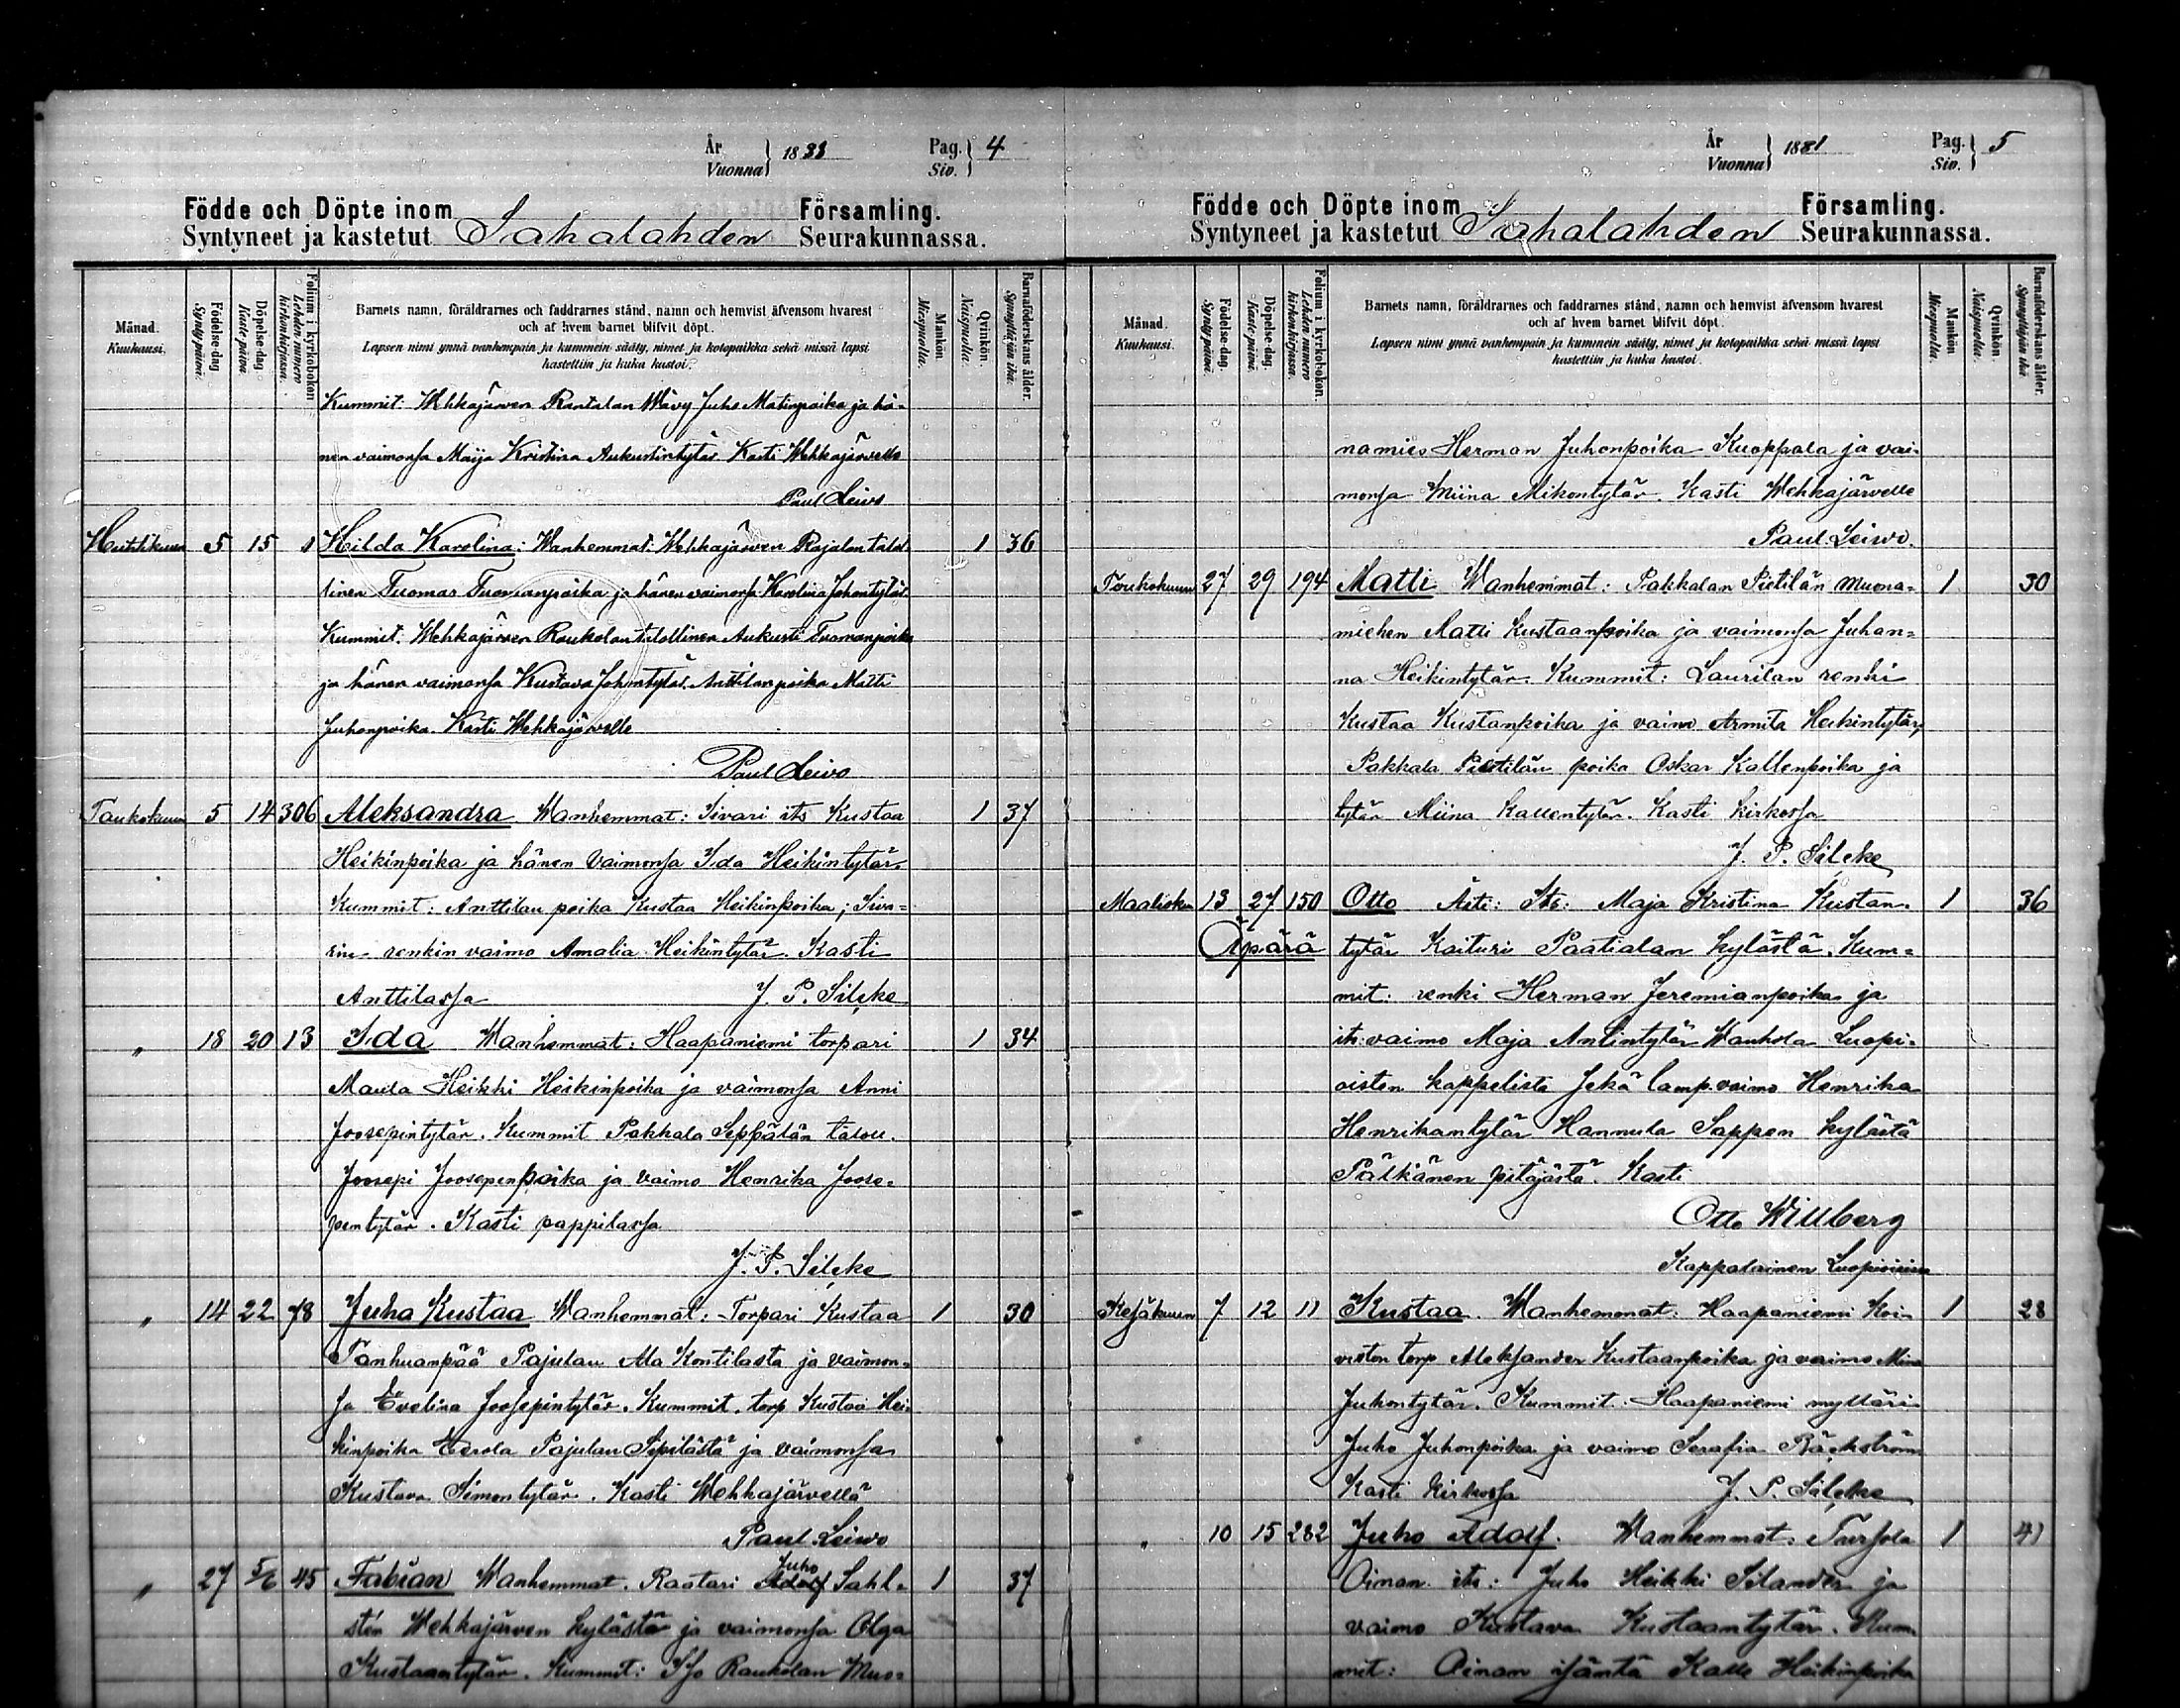 År
Vuonna 1881 Pag. Siv. 4
Födde och Döpte inom Församling.
Syntyneet ja kastetut Sahalahden Seurakunnassa.
Månad. Kuukausi.
Födelse-dag. Synty-päivä.
Döpelse-dag. Kaste-päivä.
Folium i kyrkoboken. Lehden numero kirkonkirjassa.
Barnets namn, föräldrarnes och faddrarnes stånd, namn och hemvist äfvensom hvarest
och af hvem barnet blifvit döpt.
Lapsen nimi ynnä vanhempain ja kummein sääty, nimet ja kotopaikka sekä missä lapsi
kastettiin ja kuka kastoi.
Mankön. Miespuolta.
Qvinkön. Naispuolta.
Barnaföderskans ålder. Synnyttäjän ikä.
Kummit: Wehkajärven Rantalan Wävy Juho Matinpoika ja hä-
nen vaimonsa Maija Kristina Aukustintytär. Kasti Wehkajärvelle
Paul Leivo
Huhtikuun 5 15 1 Hilda Karolina: Wanhemmat: Wehkajärven Rajalan talol- 1 36
linen Tuomas Tuomanpoika ja hänen vaimonsa Karolina Johantytär
Kummit: Wehkajärven Raukolan talollinen Aukusti Tuomanpoika
ja hänen vaimonsa Kustava Johantytär. Anttilan poika Matti
Juhonpoika. Kasti Wehkajärvelle
Paul Leivo
Toukokuun 5 14 306 Aleksandra Wanhemmat: Sivari its Kustaa 1 37
Heikinpoika ja hänen vaimonsa Ida Heikintytär.
Kummit: Anttilan poika Kustaa Heikinpoika; Siva-
rin renkin vaimo Amalia Heikintytär. Kasti
Anttilassa J. P. Sileke
" 18 20 13 Ida Wanhemmat: Haapaniemi torpari 1 34
Maula Heikki Heikinpoika ja vaimonsa Anni
Joosepintytär. Kummit Pakkala Seppälän talou.
Joosepi Joosepenpoika ja vaimo Henrika Joose-
pentytär. Kasti pappilassa
J. P. Sileke
" 14 22 78 Juha Kustaa Wanhemmat: Torpari Kustaa 1 30
Tanhuanpää Pajulan Ala Kontilasta ja vaimon-
sa Evelina Joosepintytär. Kummit. torp Kustaa Hei-
kinpoika Eerola Pajulan Sipilästä ja vaimonsa
Kustava Simontytär. Kasti Wehkajärvellä
Paul Leivo
" 27 5/6 45 Fabian Wanhemmat. Raatari Juho Adolf Sahl- 1 37
stén Wehkajärven kylästä ja vaimonsa Olga
Kustaantytär. Kummit: Iso Raukolan Muo-
År
Vuonna 1881 Pag. Siv. 5
Födde och Döpte inom Församling.
Syntyneet ja kastetut Sahalahden Seurakunnassa.
Månad. Kuukausi.
Födelse-dag. Synty-päivä.
Döpelse-dag. Kaste-päivä.
Folium i kyrkoboken. Lehden numero kirkonkirjassa.
Barnets namn, föräldrarnes och faddrarnes stånd, namn och hemvist äfvensom hvarest
och af hvem barnet blifvit döpt.
Lapsen nimi ynnä vanhempain ja kummein sääty, nimet ja kotopaikka sekä missä lapsi
kastettiin ja kuka kastoi.
Mankön. Miespuolta.
Qvinkön. Naispuolta.
Barnaföderskans ålder. Synnyttäjän ikä.
namies Herman Juhonpoika Kuoppala ja vai-
monsa Miina Mikontytär. Kasti Wehkajärvelle
Paul Leivo.
Toukokuun 27 29 194 Matti Wanhemmat: Pakkalan Pietilän muona- 1 30
miehen Matti Kustaanpoika ja vaimonsa Juhan-
na Heikintytär. Kummit: Laurilan renki
Kustaa Kustanpoika ja vaimo Armita Heikintytär,
Pakkala Pietilän poika Oskar Kallenpoika ja
tytär Miina Kallentytär. Kasti kirkossa
J. P. Sileke
Maalisku 13 27 150 Otto Äiti: Its: Maja Kristina Kustan- 1 36
Äpärä tytär Kaituri Paatialan kylästä. Kum-
mit: renki Herman Jeremianpoika ja
its: vaimo Maja Antintytär Wanhola Luopi-
oisten kappelista sekä lamp. vaimo Henrika
Henrikantytär Hannula Sappen kylästä
Pälkänen pitäjästä. Kasti
Otto Willberg
Kappalainen Luopioisissa
Kesäkuun 7 12 11 Kustaa. Wanhemmat: Haapaniemi Koi- 1 28
viston torp Aleksander Kustaanpoika ja vaimo Mina
Juhontytär. Kummit. Haapaniemi myllari
Juho Juhonpoika ja vaimo Serafia Bäckström
Kasti kirkossa J. P. Sileke
" 10 15 282 Juho Adolf. Wanhemmat: Tursola 1 41
Oinan its: Juho Heikki Silander ja
vaimo Kustava Kustaantytär. Kum-
mit: Oinan isäntä Kalle Heikinpoika